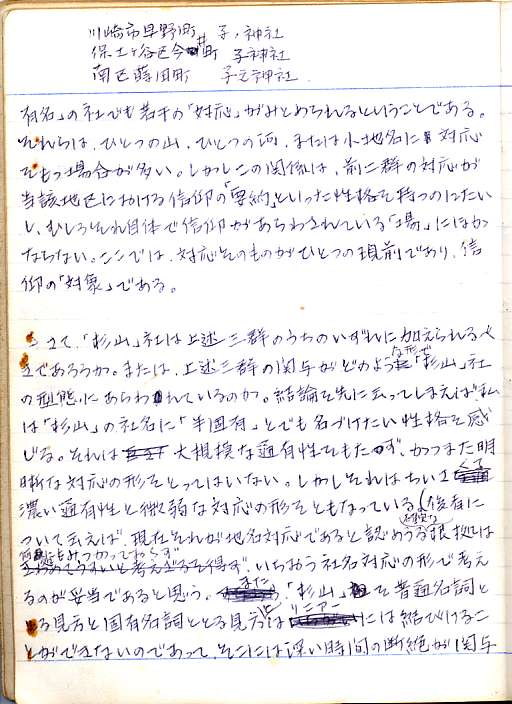 川崎市早野町 子ノ神社
保土ヶ谷区今井町 子神社
南区蒔田町 子之神社
有名」の社でも若干の「対応」がみとめられるということである。
それらは、ひとつの山、ひとつの河、または小地名に対応
をもつ場合が多い。しかしこの関係は、前二群の対応が
当該地区における信仰の「要約」といった性格を持つのにたい
し、むしろそれ自体で信仰があらわされている「場」にほか
ならない。ここでは、対応そのものがひとつの現前であり、信
仰の「対象」である。
さて、「杉山」社は上述三群のうちのいずれに加えられるべ
きであろうか。または、上述三群の関与がどのような形で「杉山」社
の型態にあらわれているのか。結論を先に云ってしまえば私
は「杉山」の社名に「半固有」とでも名づけたい性格を感
じる。それは大規模な通有性をもたず、かつまた明
晰な対応の形をとってはいない。しかしそれはちいさくて
濃い通有性と微弱な対応の形をともなっている。(後者に
ついて云えば、現在それが地名対応であると認めうる確実な根拠は
何らみつかっておらず
いちおう社名対応の形で考え
るのが妥当であると思う。また、「杉山」を普通名詞と
とる見方と固有名詞ととる見方とはリニアーには結びけるこ
とができないのであって、そこには深い時間の断絶が関与